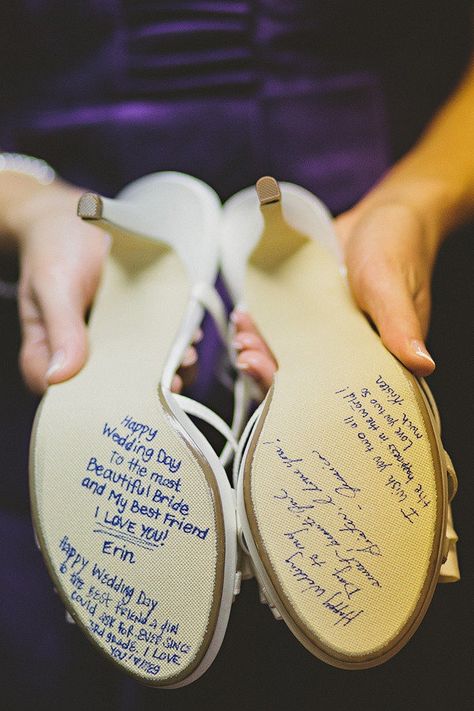 Happy
Wedding Day
To the most
Beautiful Bride
and My Best Friend
I LOVE YOU!
Erin
Happy Wedding Day
to the BEST FRIEND a girl
could ASK FOR EVER SINCE
3rd GRADE. I LOVE
YOU!
I wish you two all
the happiness in the world!
Love you two so
much,
Kristen
Happy Wedding
Day to my
sweet, sweet girl
Sister, I love you!